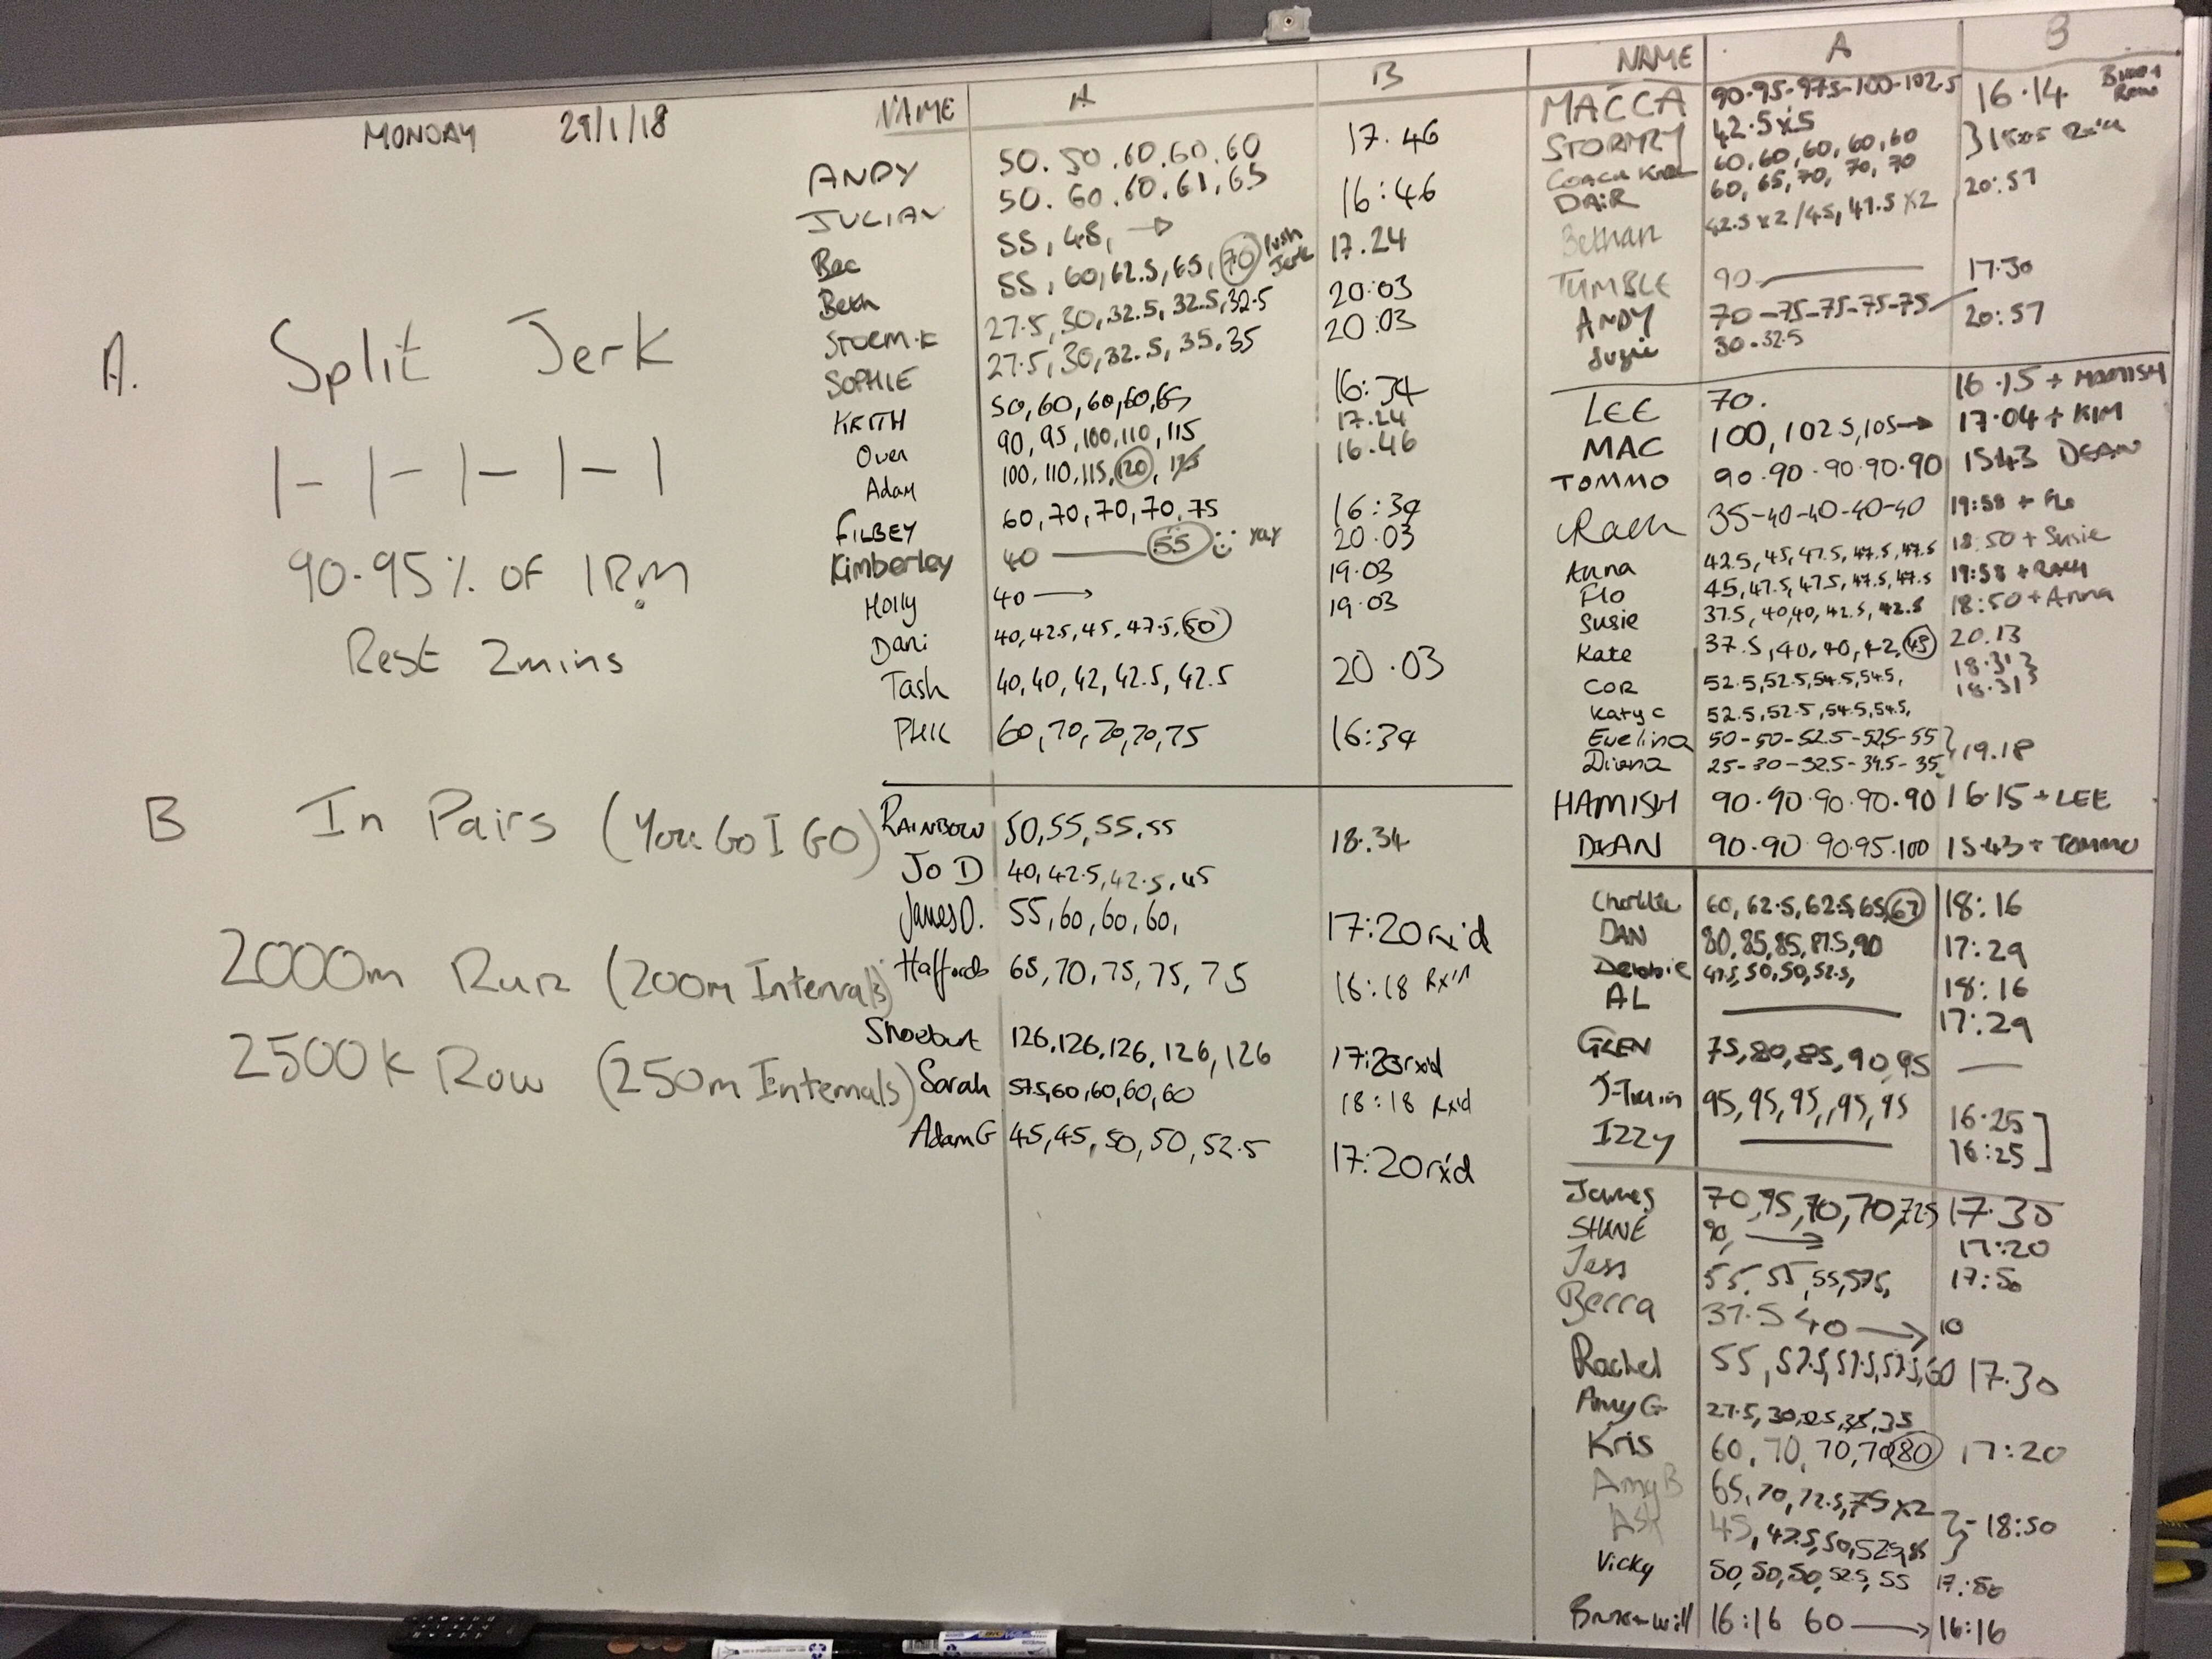 MONDAY 29/1/18
A. Split Jerk
1-1-1-1-1
90.95% OF 1RM
Rest 2mins
B In Pairs (You Go I GO)
2000m Run (200m Intervals)
2500k Row (250m Intervals)
NAME A B
ANDY 50. 50.60.60.60 17.46
JULIAN 50. 60.60.61,65 16:46
Bec 55, 48, → 17.24
Beth 55, 60, 62.5, 65, 70 Push Jerk
STORM.K 27.5, 30, 32.5, 32.5, 32.5 20:03
SOPHIE 27.5, 30, 32.5, 35, 35 20:03
KEITH 50, 60, 60, 60, 65 16:34
Owen 90, 95, 100, 110, 115 17.24
Adam 100, 110, 115, 120, 125 16.46
FILBEY 60, 70, 70, 70, 75 16:34
Kimberley 40 — 55 yay 20.03
Holly 40 → 19.03
Dani 40, 42.5, 45, 47.5, 50 19.03
Tash 40, 40, 42, 42.5, 42.5 20.03
PHIL 60, 70, 70, 70, 75 16:34
RAINBOW 50, 55, 55, 55 18.34
Jo D 40, 42.5, 42.5, 45
James D. 55, 60, 60, 60, 17:20 rx'd
Haffords 65, 70, 75, 75, 75 18:18 Rx'd
Shoebut 126, 126, 126, 126, 126 17:23 rxd
Sarah 57.5, 60, 60, 60, 60 18:18 Rx'd
Adam G 45, 45, 50, 50, 52.5 17:20 rx'd
NAME A B
MACCA 90.95-97.5-100-102.5 16.14 Row
STORMZY 42.5x5
COACH 60, 60, 60, 60, 60 Rx'd
DAIR 60, 65, 70, 70, 70 20:57
Bethan 42.5 x2 / 45, 47.5 x2
TUMBLE 90 — 17.30
ANDY 70-75-75-75-75 20:57
Suzie 30.32.5
LEE 70. 16.15 + HAMISH
MAC 100, 102.5, 105 → 17.04 + KIM
TOMMO 90.90.90.90.90 15.43 DEAN
Rach 35-40-40-40-40 19:58 + Flo
Anna 42.5, 45, 47.5, 47.5, 47.5 18:50 + Susie
Flo 45, 47.5, 47.5, 47.5, 47.5 19:58 + Rach
Susie 37.5, 40, 40, 42.5, 42.5 18:50 + Anna
Kate 37.5, 40, 40, 42, 45 20.13
COR 52.5, 52.5, 54.5, 54.5, 18.31
Katy C 52.5, 52.5, 54.5, 54.5, 18.31
Evelina 50-50-52.5-52.5-55 19.18
Diana 25-30-32.5-34.5-35
HAMISH 90.90.90.90.90 16.15 + LEE
DEAN 90.90.90.95.100 15.43 + TOMMO
Charlotte 60, 62.5, 62.5, 65, 67 18:16
DAN 80, 85, 85, 87.5, 90 17:29
Debbie 47.5, 50, 50, 52.5, 18:16
AL — 17:29
GLEN 75, 80, 85, 90, 95 —
J-Train 95, 95, 95, 95, 95 16.25
IZZY — 16:25
James 70, 95, 70, 70, 72.5 17.30
SHANE 90, → 17:20
Jess 55, 55, 55, 57.5, 17:50
Becca 37.5 40 → 10
Rachel 55, 57.5, 57.5, 57.5, 60 17.30
Amy G 27.5, 30, 35
Kris 60, 70, 70, 70, 80 17:20
Amy B 65, 70, 72.5, 75 x2
Ash 45, 47.5, 50, 52.5, 18:50
Vicky 50, 50, 50, 52.5, 55 17:50
will 16:16 60 → 16:16